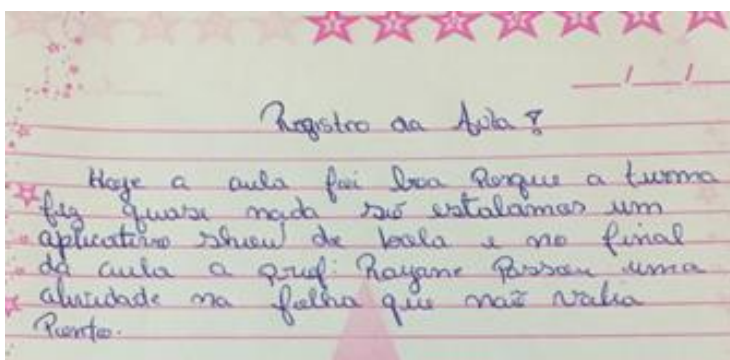 Registro da Aula!
Hoje a aula foi boa Porque a turma
fez quase nada só estalamos um
aplicativo show de bola e no final
da aula a prof: Rayane Passou uma
atividade na folha que não valia
Ponto.